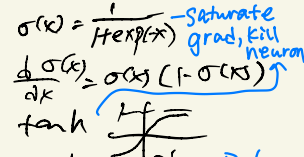 σ(x) = 1 / 1+exp(-x) - saturate
grad, kill
neuron
d σ(x) / dx = σ(x) (1 - σ(x))
tanh